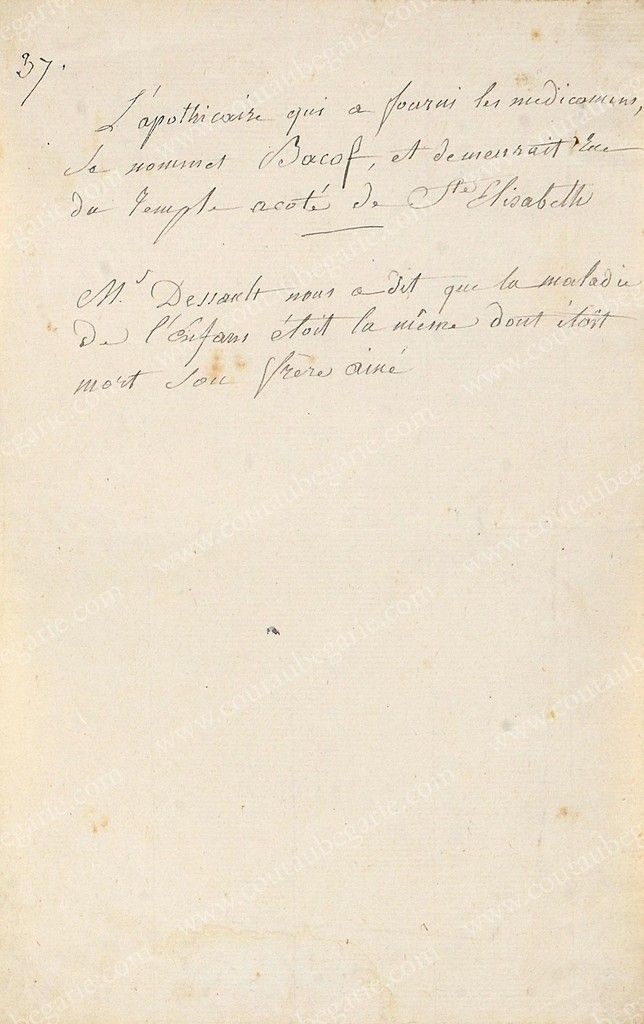 37.
L'apothicaire qui a fourni les medicamens,
se nommet Bacof, et demeurrait rue
du Temple acoté de Ste Elisabeth
Mr Dessault nous a dit que la maladie
de l'Enfans étoit la même dont étoit
mort son frère ainé
www.coutaubegarie.com